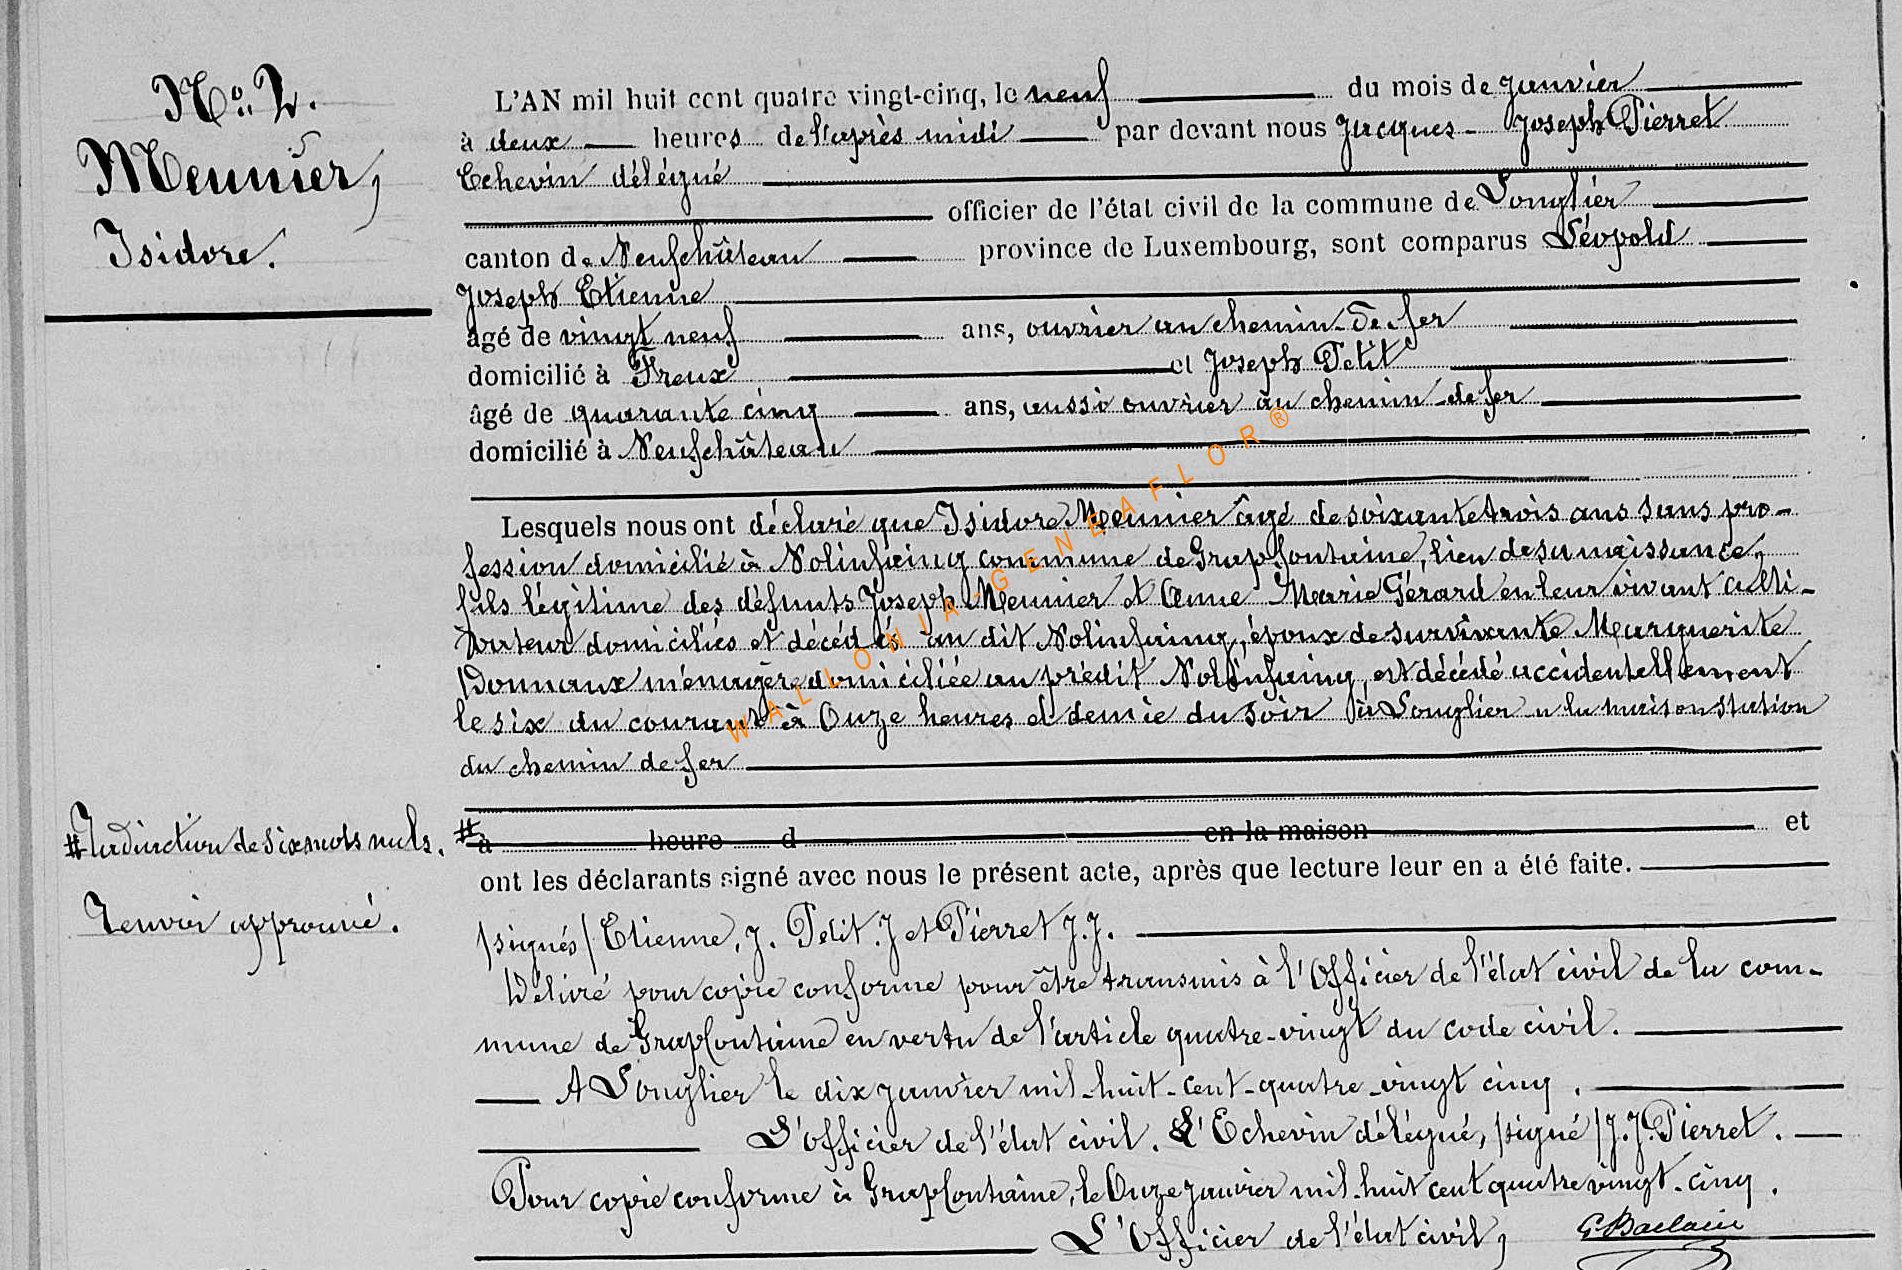 No. 2.
Meunier,
Isidore.
L'AN mil huit cent quatre vingt-cinq, le neuf du mois de Janvier
à deux heures de l'après midi par devant nous Jacques-Joseph Pierret
Echevin délégué
officier de l'état civil de la commune de Longlier
canton de Neufchâteau province de Luxembourg, sont comparus Léopold
Joseph Etienne
âgé de vingt neuf ans, ouvrier au chemin de fer
domicilié à Freux et Joseph Petit
âgé de quarante cinq ans, aussi ouvrier au chemin de fer
domicilié à Neufchâteau
Lesquels nous ont déclaré que Isidore Meunier âgé de soixante trois ans sans pro-
fession domicilié à Nolinfaing commune de Grapfontaine, lieu de sa naissance,
fils légitime des défunts Joseph Meunier et Anne Marie Gérard en leur vivant culti-
vateur domiciliés et décédés au dit Nolinfaing, époux de survivante Marguerite
Donnaux ménagère domiciliée au prédit Nolinfaing, est décédé accidentellement
le six du courant à Onze heures et demie du soir à Longlier a la maison station
du chemin de fer
# à heure d en la maison et
ont les déclarants signé avec nous le présent acte, après que lecture leur en a été faite.
#Interdiction de six mots nuls.
Renvoi approuvé.
/signés/ Etienne, J. Petit. J et Pierret J.J.
Délivré pour copie conforme pour être transmis à l'Officier de l'état civil de la com-
mune de Grapfontaine en vertu de l'article quatre-vingt du code civil.
A Longlier le dix janvier mil-huit-cent-quatre-vingt cinq.
L'Officier de l'état civil. L'Echevin délégué, /signé/ J.J. Pierret.
Pour copie conforme à Grapfontaine, le Onze janvier mil-huit cent quatre vingt-cinq.
L'Officier de l'état civil,
WALLONIA-GENEAFLOR®